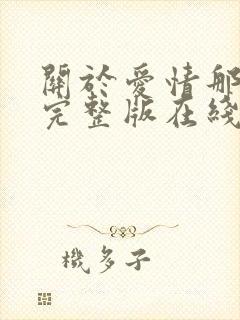 關於愛情那
完整版在綫
機多子